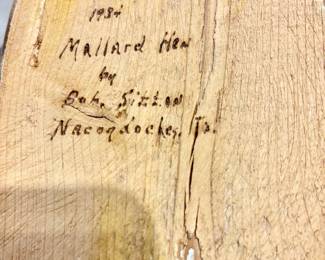 1984
Mallard Hen
by
Bob. Sitton
Nacogdoches, Tx.